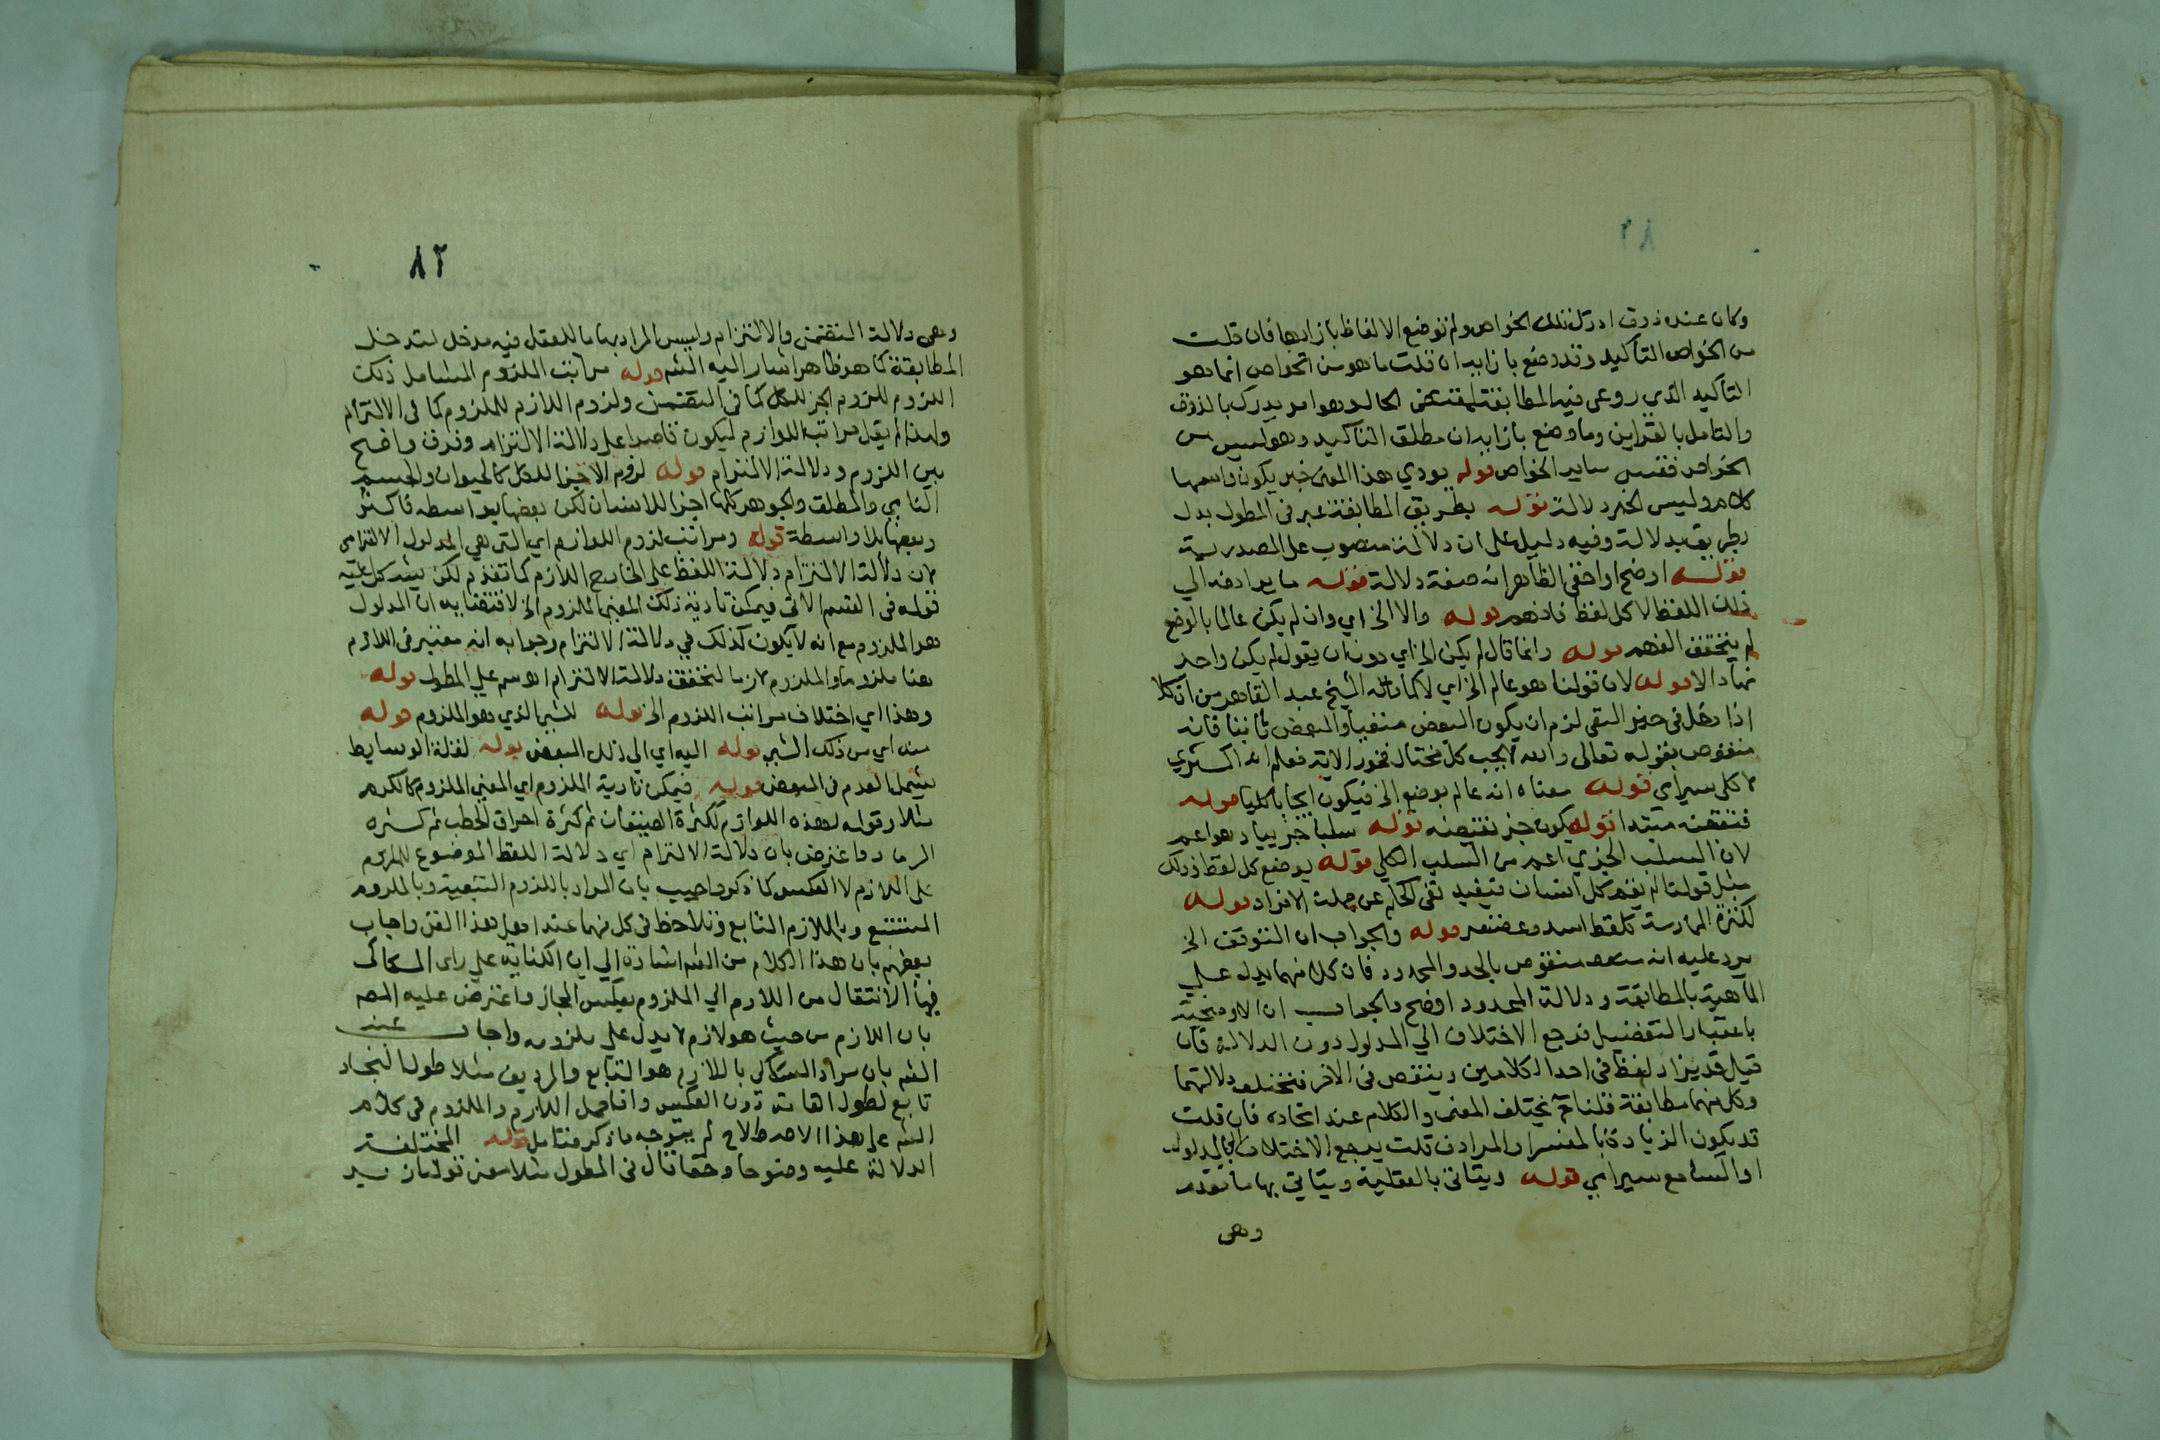 وكان عنده ذوق ادرك تلك الخواص ولم توضع الالفاظ بازايها فان قلت
من الخواص التأكيد وقد وضع بازايه ان قلت ما هو من الخواص انما هو
التأكيد الذي روعي فيه المطابقة لمقتضى الحال وهو امر يدرك بالذوق
والتامل بالقراين وما وضع بازايه ان مطلق التأكيد وهو ليس من
الخواص فقس ساير الخواص قوله يودي هذا المعنى خبر يكون واسمها
كلام وليس الخبر دلالة قوله بطريق المطابقة عبر في المطول بدل
بطريق بدلالة وفيه دليل على ان دلالة منصوب على المصدرية
قوله اوضح او اخفى الظاهر انه صفة دلالة قوله ما يرادفه الي
ذلك اللفظ لا كل لفظ فافهم قوله والا الخ اي وان لم يكن عالما بالوضع
لم يتحقق الفهم قوله وانما قال لم يكن الخ اي دون ان يقول لم يكن واحد
منها دالا قوله لان قولنا هو عالم الخ اي لا كما قاله الشيخ عبد القاهر من ان كلا
اذا دخل في حيز النفي لزم ان يكون البعض منفيا والبعض ثابتا فانه
منقوض بقوله تعالى والله لا يحب كل مختال فخور الاية فعلم انه اكثري
لا كلي سيرامي قوله معناه انه عالم بوضع الخ فيكون ايجابا كليا قوله
فنقيضه مبتدا قوله يكون خبر نقيضه قوله سلبا جزييا وهو اعم
لان السلب الجزي اعم من السلب الكلي قوله بوضع كل لفظ وذلك
مثل قولنا لم يقم كل انسان فيفيد نفي الحكم عن جملة الافراد قوله
لكثرة الممارسة كلفظ اسد وغضنفر قوله والجواب ان التوقف الخ
يرد عليه انه منقوض بالحد والمحدود فان كلا منهما يدل علي
الماهية بالمطابقة ودلالة المحدود اوضح والجواب ان الاوضحية
باعتبار التفضيل فرجع الاختلاف الي المدلول دون الدلالة فان
قيل قد يزاد لفظ في احد الكلامين وينقص في الاخر فتختلف دلالتهما
وكل منهما مطابقة قلنا ح يختلف المعنى والكلام عند اتحاده فان قلت
قد يكون الزيادة بالمفسر والمرادف قلت يرجع الاختلاف الى المدلول
او السامع سيرامي قوله ويتاتى بالعقلية ويتاتي بها ما تقدم
وهى
٨٢
وهى دلالة التضمن والالتزام وليس المراد بها ما للعقل فيه مدخل لتدخل
المطابقة كما هو ظاهر اشار اليه الشم قوله مراتب اللزوم الشامل ذلك
اللزوم للزوم الجز للكل كما في التضمن ولزوم اللازم للملزوم كما في الالتزام
ولهذا لم يقل مراتب اللوازم ليكون قاصرا علي دلالة الالتزام وفرق واضح
بين اللزوم ودلالة الالتزام قوله لزوم الاجزا للكل كالحيوان والجسم
النامي والمطلق والجوهر كلها اجزا للانسان لكن بعضها بواسطة فاكثر
وبعضها بلا واسطة قوله ومراتب لزوم اللوازم اي التي هي المدلول الالتزامي
لان دلالة الالتزام دلالة اللفظ على الخارج اللازم كما تقدم لكن يشكل عليه
قوله في القسم الاتي فيمكن تادية ذلك المعنى الملزوم الخ لاقتضايه ان المدلول
هو الملزوم مع انه لا يكون كذلك في دلالة الالتزام وجوابه انه معتبر في اللازم
هنا ملزوما والملزوم لازما لتحقق دلالة الالتزام اه رسم علي المطول قوله
وهذا اي اختلاف مراتب اللزوم الخ قوله للشيء الذي هو الملزوم قوله
منه اي من ذلك الشيء قوله اليه اي الي ذلك البعض قوله لقلة الوسايط
يشمل العدم في البعض قوله فيمكن تادية الملزوم اي المعنى الملزوم كالكرم
مثلا وقوله بهذه اللوازم ككثرة الضيفان ثم كثرة احراق الحطب ثم كثرة
الرماد واعترض بان دلالة الالتزام اي دلالة اللفظ الموضوع للملزوم
على اللازم لا العكس كما ذكر واجيب بان المراد باللزوم التبعية وبالملزوم
المستتبع وباللازم التابع ونلاحظ في كل منهما عند اهل هذا الفن واجاب
بعظهم بان هذا الكلام من الشم اشارة الي ان الكناية علي راى السكاكى
فيها الانتقال من اللازم الي الملزوم بعكس المجاز واعترض عليه المصم
بان اللازم من حيث هو لازم لا يدل علي ملزومه واجاب عنه
الشم بان مراد السكاكي باللازم هو التابع والرديف مثلا طول النجاد
تابع لطول القامة دون العكس وانا حمل اللازم والملزوم في كلام
الشم علي هذا الاصطلاح لم يتوجه ما ذكر فتامل قوله المختلفة
الدلالة عليه وضوحا وخفا قال في المطول مثلا معنى قولنا زيد